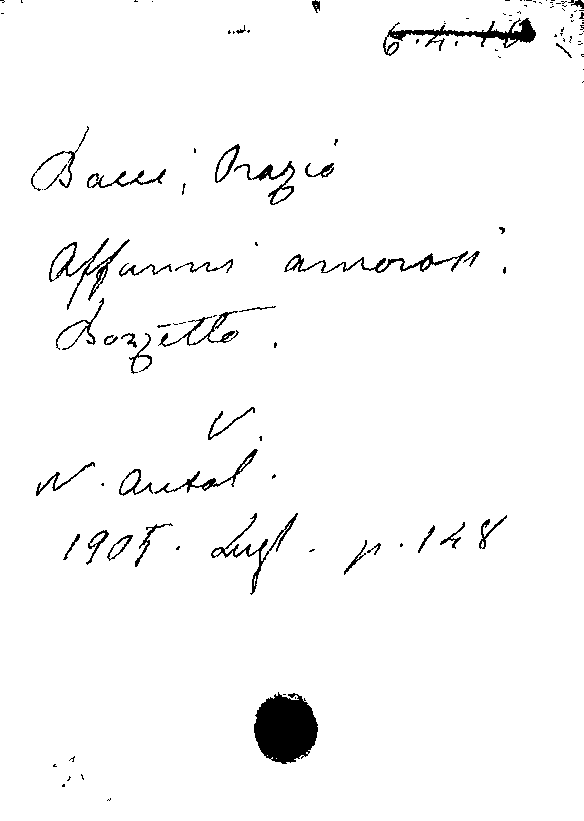 6.4.10
Bacci, Orazio
Affanni amorosi.
Bozzetto.
V.
N. Antol.
1905. Lugl. p. 148